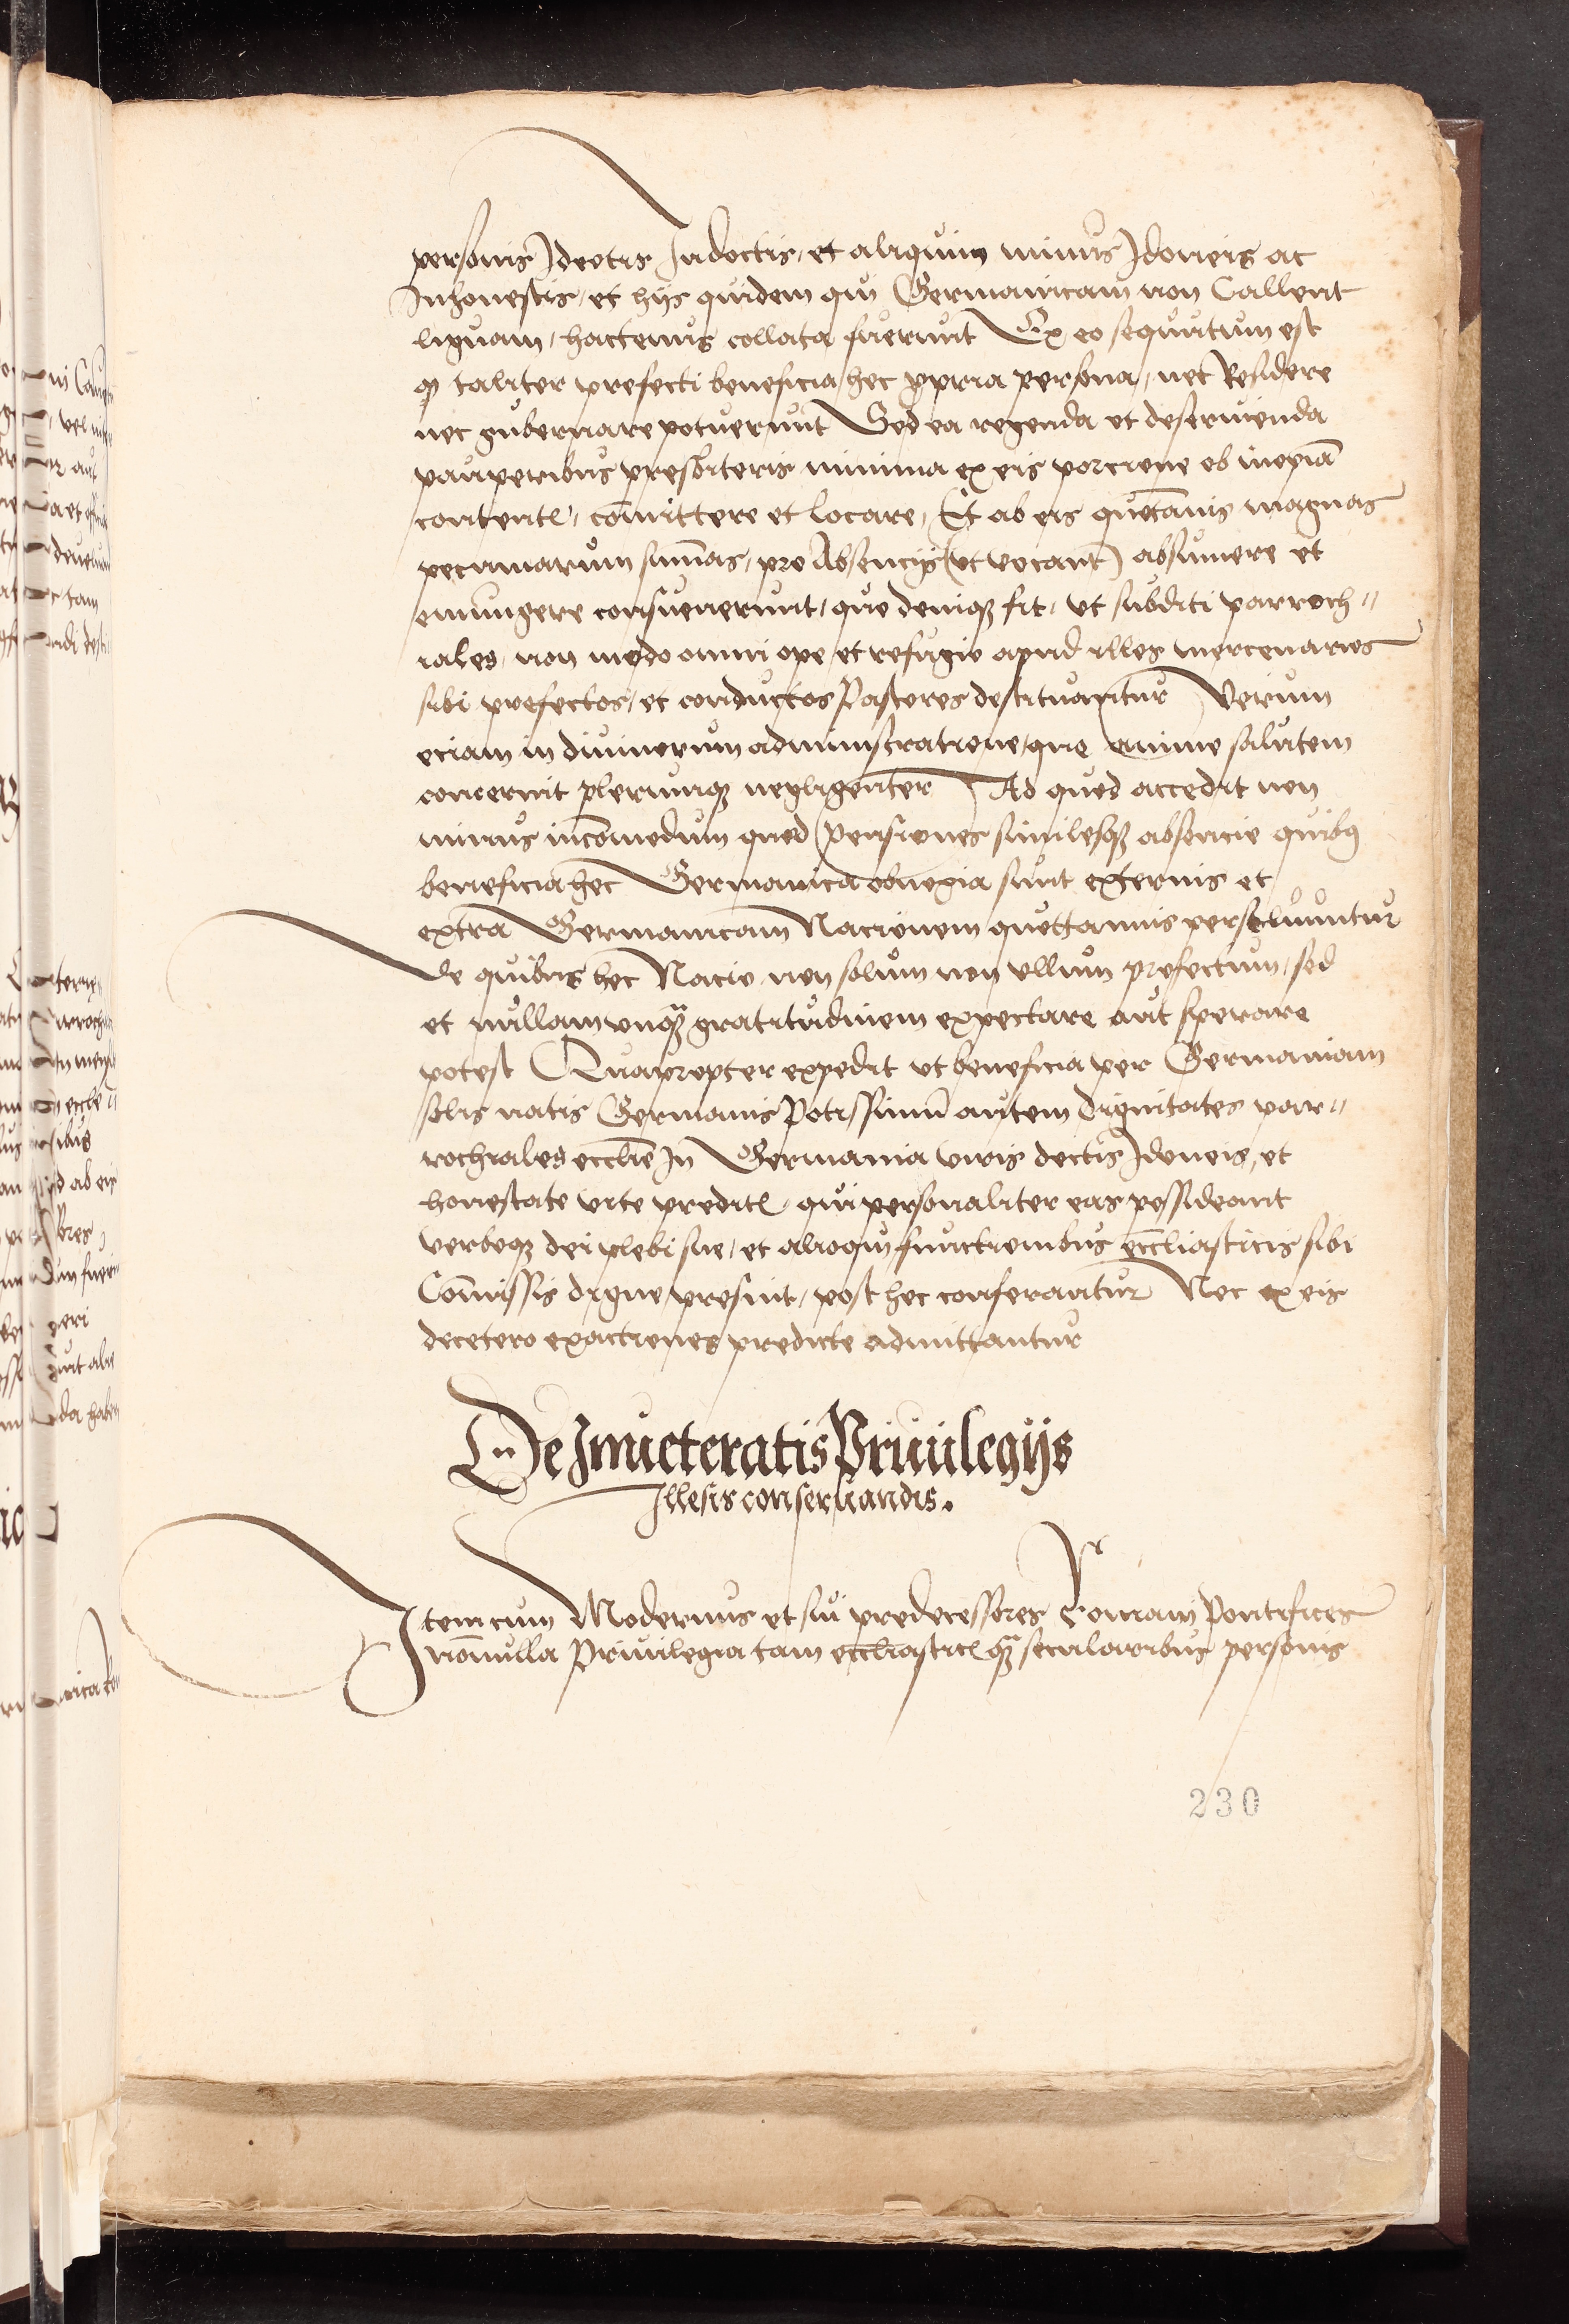 personis Ideotis Indoctis, et aliquin minus Idoneis ac
Inhonestis, et hijs quidem qui Germanicam non Callent
liguam, hactenus collata fuerunt Ex eo sequutum est
ꝙ taliter prefecti beneficia hec ꝓpria persona, nec Residere
nec gubernare potuerunt Sed ea regenda et deseruienda
pauperibus presbiteris minima ex eis porcione ob inopiā
contentꝭ, com̄ittere et locare, Et ab eis quotānis magnas
pecuniarum sum̄as, pro Absencijs (vt vocant) absumere et
emungere consueuerunt, quo deniqꝫ fit, vt subditi parroch⸗
iales, non modo omni ope et refugio apud illos mercenarios
sibi prefectos, et conductos Pastores destituantur Verum
eciam in diuinorum administratione, que anime salutem
concernit plerunqꝫ negligenter Ad quod accedit non
minus incōmodum quod pensiones similesqꝫ absencie quibꝯ
beneficia hec Germanica obnoxia sunt externis et
extra Germanicam Nacionem quottannis persoluuntur
de quibus hec Nacio non solum non vllum profectum, sed
et nullam vnqꝫ gratitudinem expectare aut sperare
potest Quapropter expedit vt beneficia per Germaniam
solis natis Germanis Potissimū autem dignitates par⸗
rochiales eccl̄ie In Germania viris doctis Idoneis, et
honestate vite preditꝭ, qui personaliter eas possideant
verboqꝫ dei plebi sue, et alioqui functionibus eccl̄iasticis sibi
Com̄issis digne presint, post hec conferantur Nec ex eis
decetero exactiones predicte admittantur
De Inueteratis Priuilegijs
Illesis conseruandis.
Item cum Modernus et sui predecessores Romani Pontifices
nōnulla Priuilegia tam eccl̄iasticꝭ qꝫ secularibus personis
230